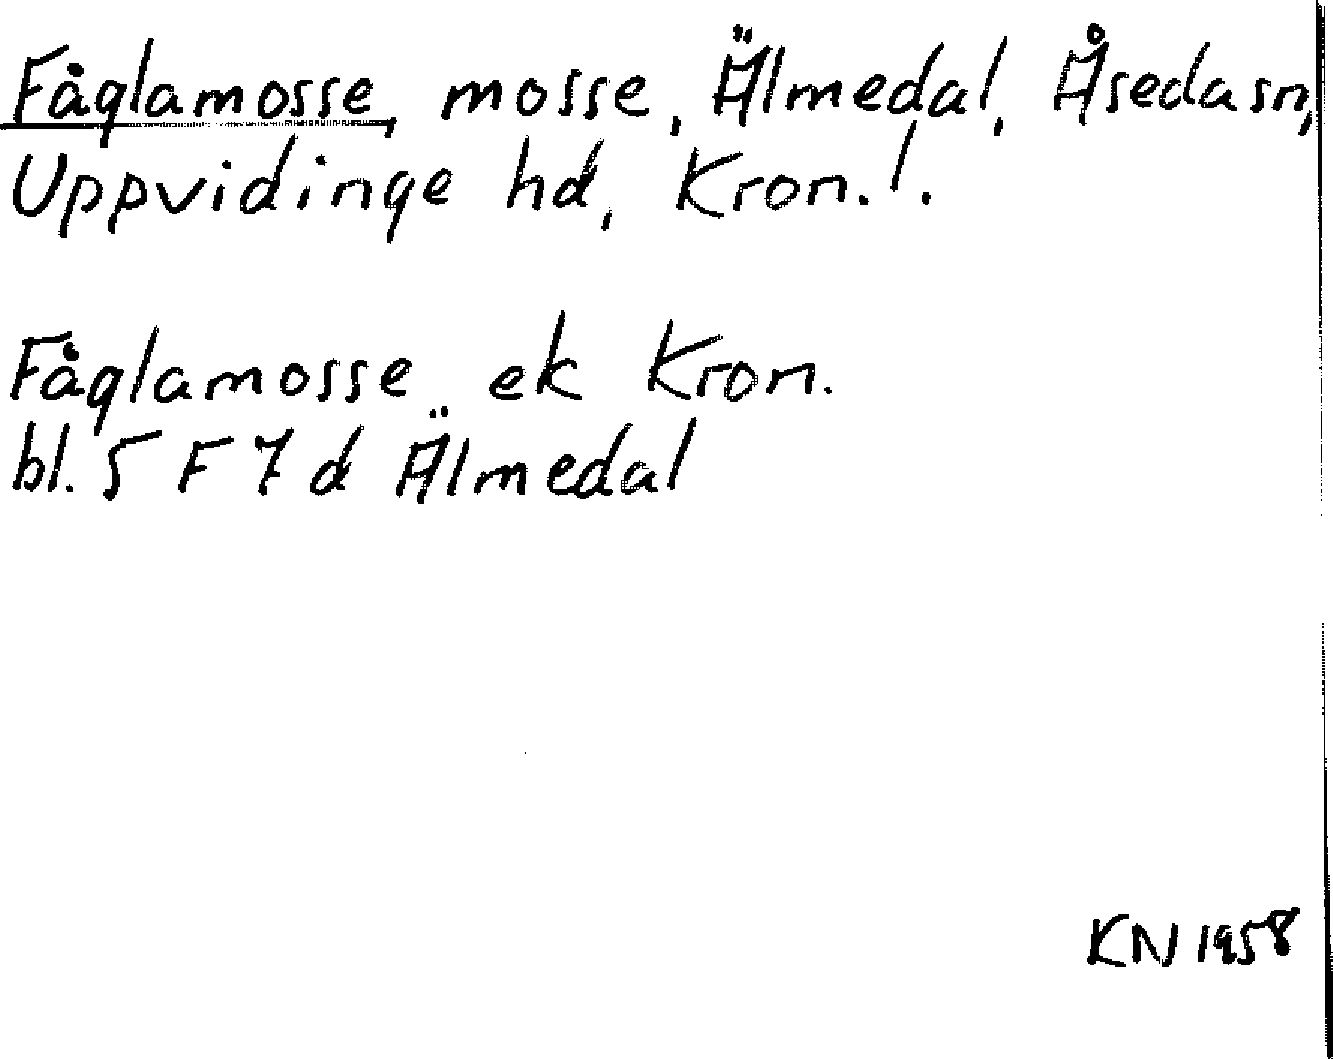 Fåglamosse, mosse, Älmedal, Åseda sn,
Uppvidinge hd, Kron. l.
Fåglamosse ek Kron.
bl. 5 F 7 d Älmedal
KN 1958